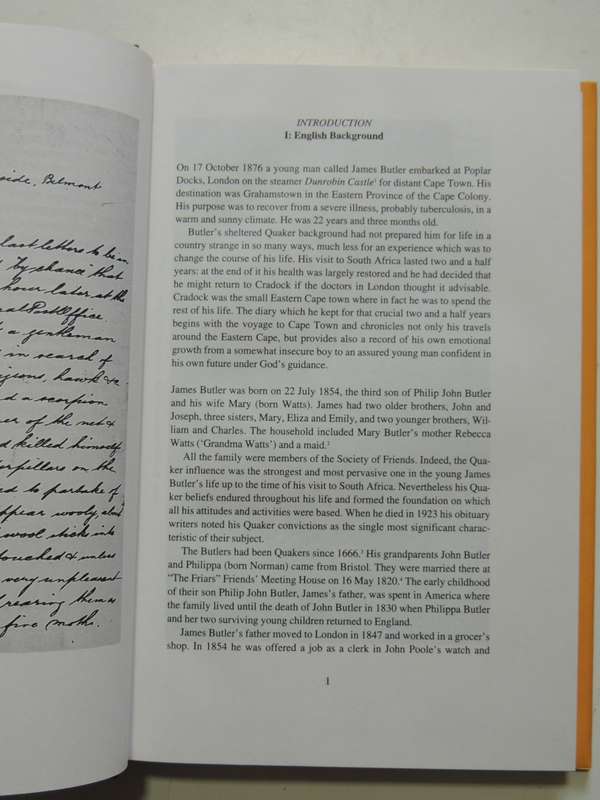 side, Belmont
last letters to be in
by chance that
hour later at the
Post Office.
a gentleman
in search of
hawk &c.
d a scorpion
er of the net &
d killed himself
terpillars on the
ed to partake of
ppear wooly, and
wool sticks into
touched & unless
very unpleasant
rearing them a
five moths.
INTRODUCTION
I: English Background
On 17 October 1876 a young man called James Butler embarked at Poplar
Docks, London on the steamer Dunrobin Castle¹ for distant Cape Town. His
destination was Grahamstown in the Eastern Province of the Cape Colony.
His purpose was to recover from a severe illness, probably tuberculosis, in a
warm and sunny climate. He was 22 years and three months old.
Butler's sheltered Quaker background had not prepared him for life in a
country strange in so many ways, much less for an experience which was to
change the course of his life. His visit to South Africa lasted two and a half
years: at the end of it his health was largely restored and he had decided that
he might return to Cradock if the doctors in London thought it advisable.
Cradock was the small Eastern Cape town where in fact he was to spend the
rest of his life. The diary which he kept for that crucial two and a half years
begins with the voyage to Cape Town and chronicles not only his travels
around the Eastern Cape, but provides also a record of his own emotional
growth from a somewhat insecure boy to an assured young man confident in
his own future under God's guidance.
James Butler was born on 22 July 1854, the third son of Philip John Butler
and his wife Mary (born Watts). James had two older brothers, John and
Joseph, three sisters, Mary, Eliza and Emily, and two younger brothers, Wil-
liam and Charles. The household included Mary Butler's mother Rebecca
Watts ('Grandma Watts') and a maid.²
All the family were members of the Society of Friends. Indeed, the Qua-
ker influence was the strongest and most pervasive one in the young James
Butler's life up to the time of his visit to South Africa. Nevertheless his Qua-
ker beliefs endured throughout his life and formed the foundation on which
all his attitudes and activities were based. When he died in 1923 his obituary
writers noted his Quaker convictions as the single most significant charac-
teristic of their subject.
The Butlers had been Quakers since 1666.³ His grandparents John Butler
and Philippa (born Norman) came from Bristol. They were married there at
"The Friars" Friends' Meeting House on 16 May 1820.⁴ The early childhood
of their son Philip John Butler, James's father, was spent in America where
the family lived until the death of John Butler in 1830 when Philippa Butler
and her two surviving young children returned to England.
James Butler's father moved to London in 1847 and worked in a grocer's
shop. In 1854 he was offered a job as a clerk in John Poole's watch and
1